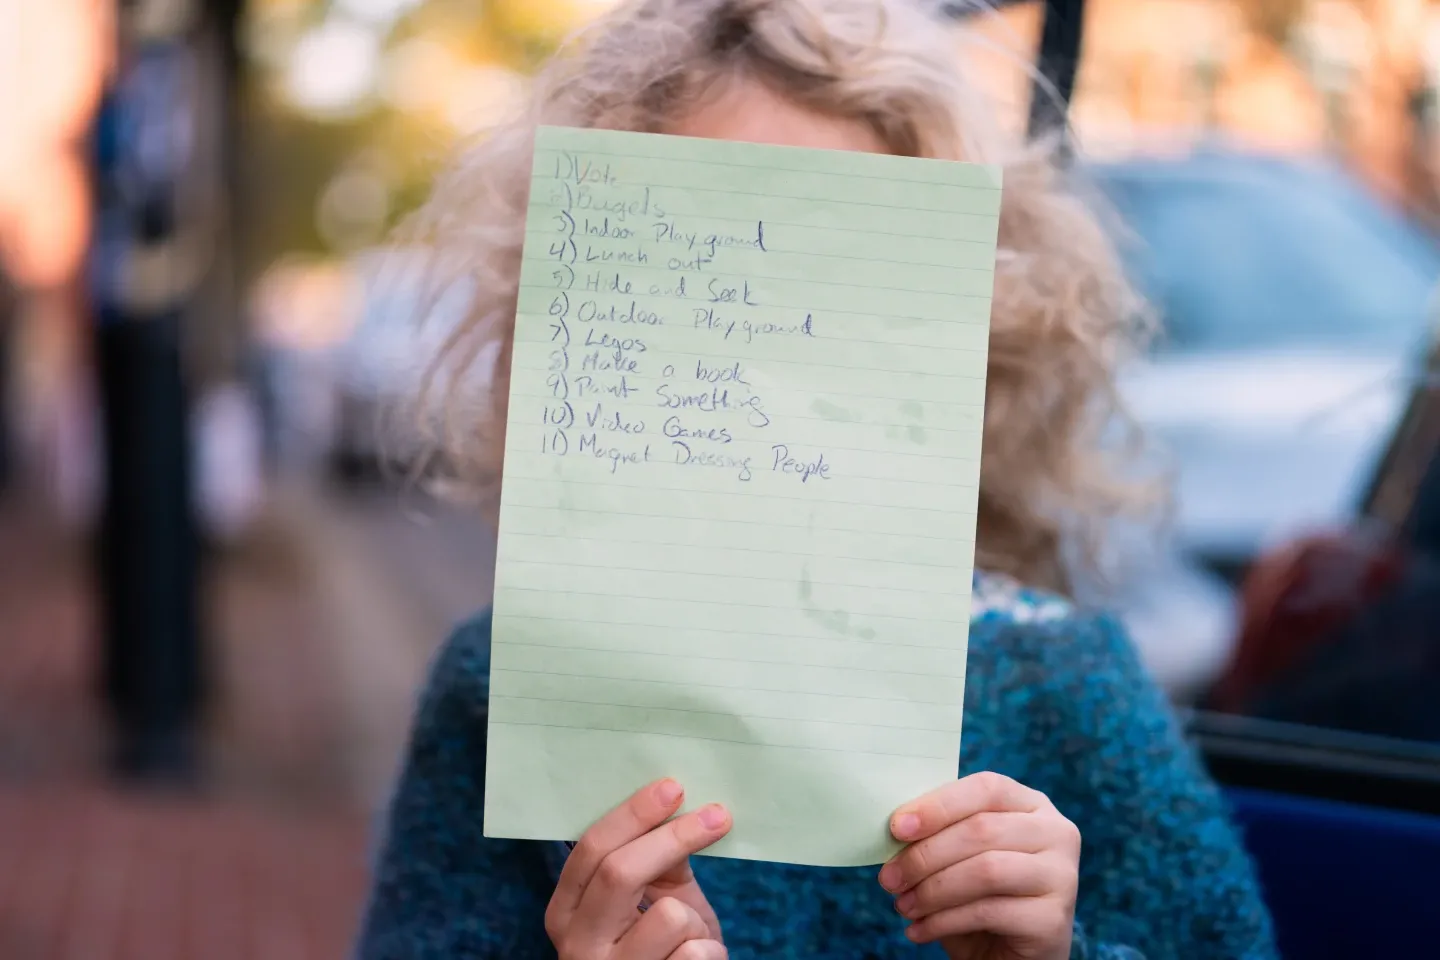 1) Vote
2) Bagels
3) Indoor Playground
4) Lunch out
5) Hide and Seek
6) Outdoor Playground
7) Legos
8) Make a book
9) Paint Something
10) Video Games
11) Magnet Dressing People